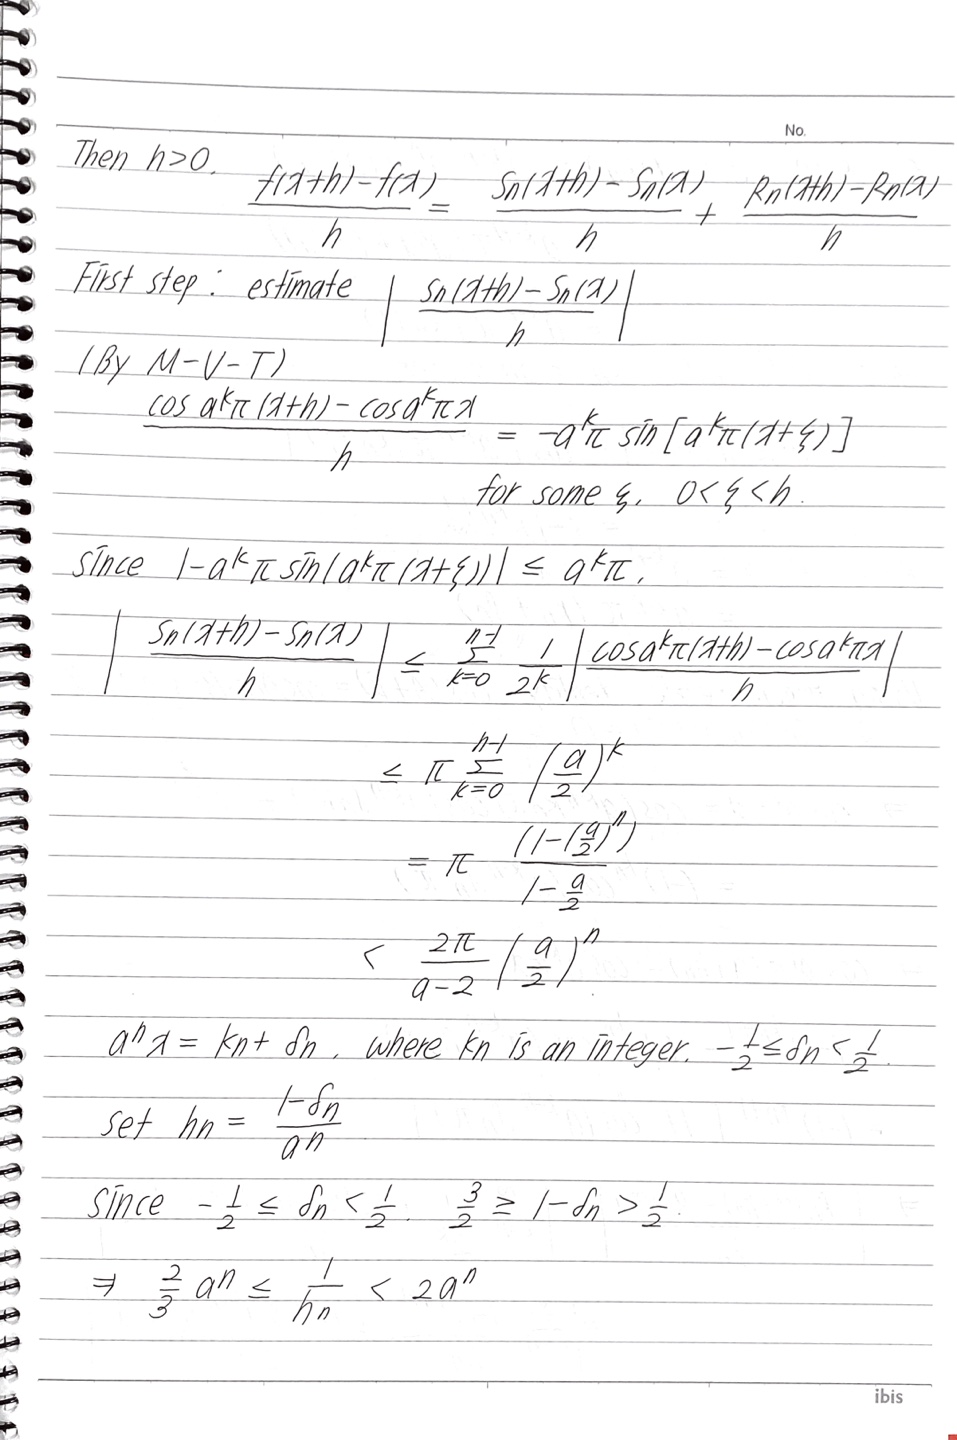 No.
Then h>0. \frac{f(x+h)-f(x)}{h} = \frac{S_n(x+h)-S_n(x)}{h} + \frac{R_n(x+h)-R_n(x)}{h}
First step: estimate \left| \frac{S_n(x+h)-S_n(x)}{h} \right|
(By M-V-T)
\frac{cos a^kπ(x+h)-cos a^kπx}{h} = -a^kπ sin[a^kπ(x+ξ)]
for some ξ. 0<ξ<h.
since |-a^kπ sin(a^kπ(x+ξ))| ≤ a^kπ,
\left| \frac{S_n(x+h)-S_n(x)}{h} \right| ≤ \sum_{k=0}^{n-1} \frac{1}{2^k} \left| \frac{cos a^kπ(x+h)-cos a^kπx}{h} \right|
≤ π \sum_{k=0}^{n-1} \left( \frac{a}{2} \right)^k
= π \frac{(1-(\frac{a}{2})^n)}{1-\frac{a}{2}}
< \frac{2π}{a-2} \left( \frac{a}{2} \right)^n.
a^n x = k_n + δ_n, where k_n is an integer. -\frac{1}{2} ≤ δ_n < \frac{1}{2}.
set h_n = \frac{1-δ_n}{a^n}
since -\frac{1}{2} ≤ δ_n < \frac{1}{2}. \frac{3}{2} ≥ 1-δ_n > \frac{1}{2}.
⇒ \frac{2}{3} a^n ≤ \frac{1}{h_n} < 2a^n
ibis